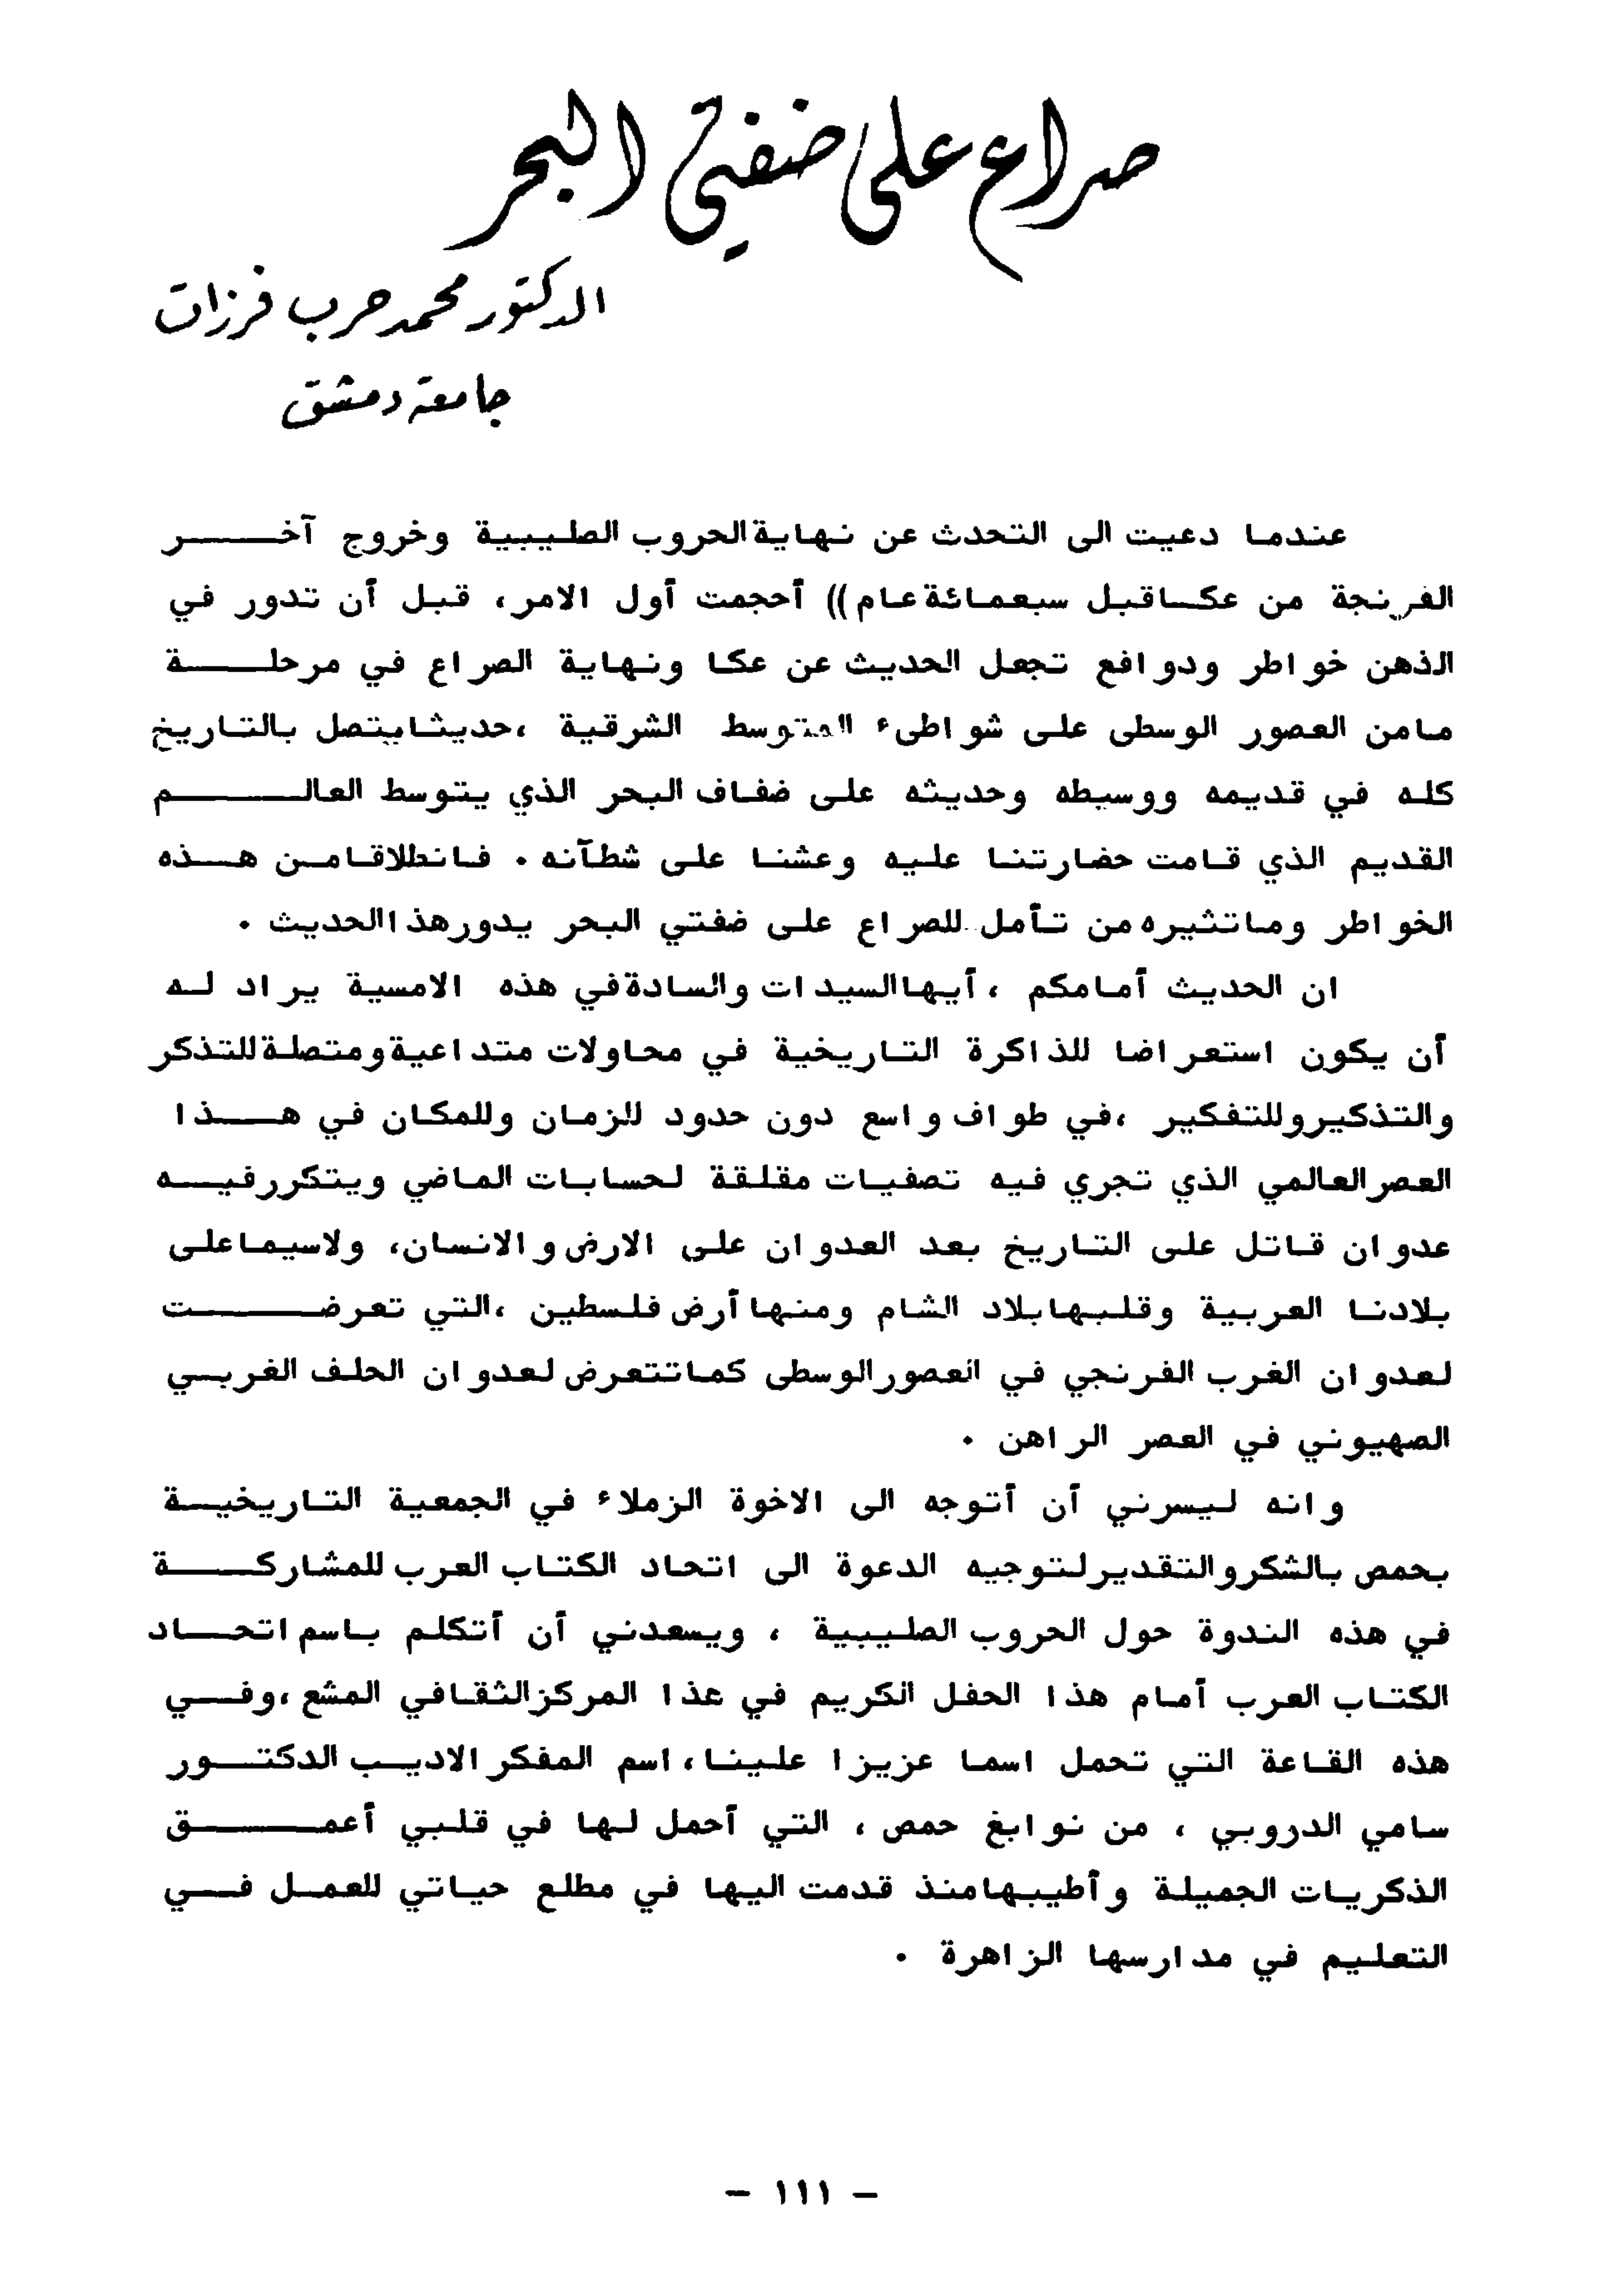 صراع على ضفتي البحر
الدكتور محمد حرب فرزات
جامعة دمشق
عندما دعيت الى التحدث عن نهاية الحروب الصليبية وخروج آخر
الفرنجة من عكا قبل سبعمائة عام)) أحجمت أول الامر، قبل أن تدور في
الذهن خواطر ودوافع تجعل الحديث عن عكا ونهاية الصراع في مرحلة
ما من العصور الوسطى على شواطىء المتوسط الشرقية ،حديثا يتصل بالتاريخ
كله في قديمه ووسيطه وحديثه على ضفاف البحر الذي يتوسط العالم
القديم الذي قامت حضارتنا عليه وعشنا على شطآنه . فانطلاقا من هذه
الخواطر وماتثيره من تأمل للصراع على ضفتي البحر يدور هذا الحديث .
ان الحديث أمامكم ، أيها السيدات والسادة في هذه الامسية يراد له
أن يكون استعراضا للذاكرة التاريخية في محاولات متداعية ومتصلة للتذكر
والتذكير وللتفكير ،في طواف واسع دون حدود للزمان وللمكان في هذا
العصر العالمي الذي تجري فيه تصفيات مقلقة لحسابات الماضي ويتكرر فيه
عدوان قاتل على التاريخ بعد العدوان على الارض والانسان، ولاسيما على
بلادنا العربية وقلبها بلاد الشام ومنها أرض فلسطين ،التي تعرضت
لعدوان الغرب الفرنجي في العصور الوسطى كما تتعرض لعدوان الحلف الغربي
الصهيوني في العصر الراهن .
وانه ليسرني أن أتوجه الى الاخوة الزملاء في الجمعية التاريخية
بحمص بالشكر والتقدير لتوجيه الدعوة الى اتحاد الكتاب العرب للمشاركة
في هذه الندوة حول الحروب الصليبية ، ويسعدني أن أتكلم باسم اتحاد
الكتاب العرب أمام هذا الحفل الكريم في هذا المركز الثقافي المشع ،وفي
هذه القاعة التي تحمل اسما عزيزا علينا، اسم المفكر الاديب الدكتور
سامي الدروبي ، من نوابغ حمص ، التي أحمل لها في قلبي أعمق
الذكريات الجميلة وأطيبها منذ قدمت اليها في مطلع حياتي للعمل في
التعليم في مدارسها الزاهرة .
- ١١١ -